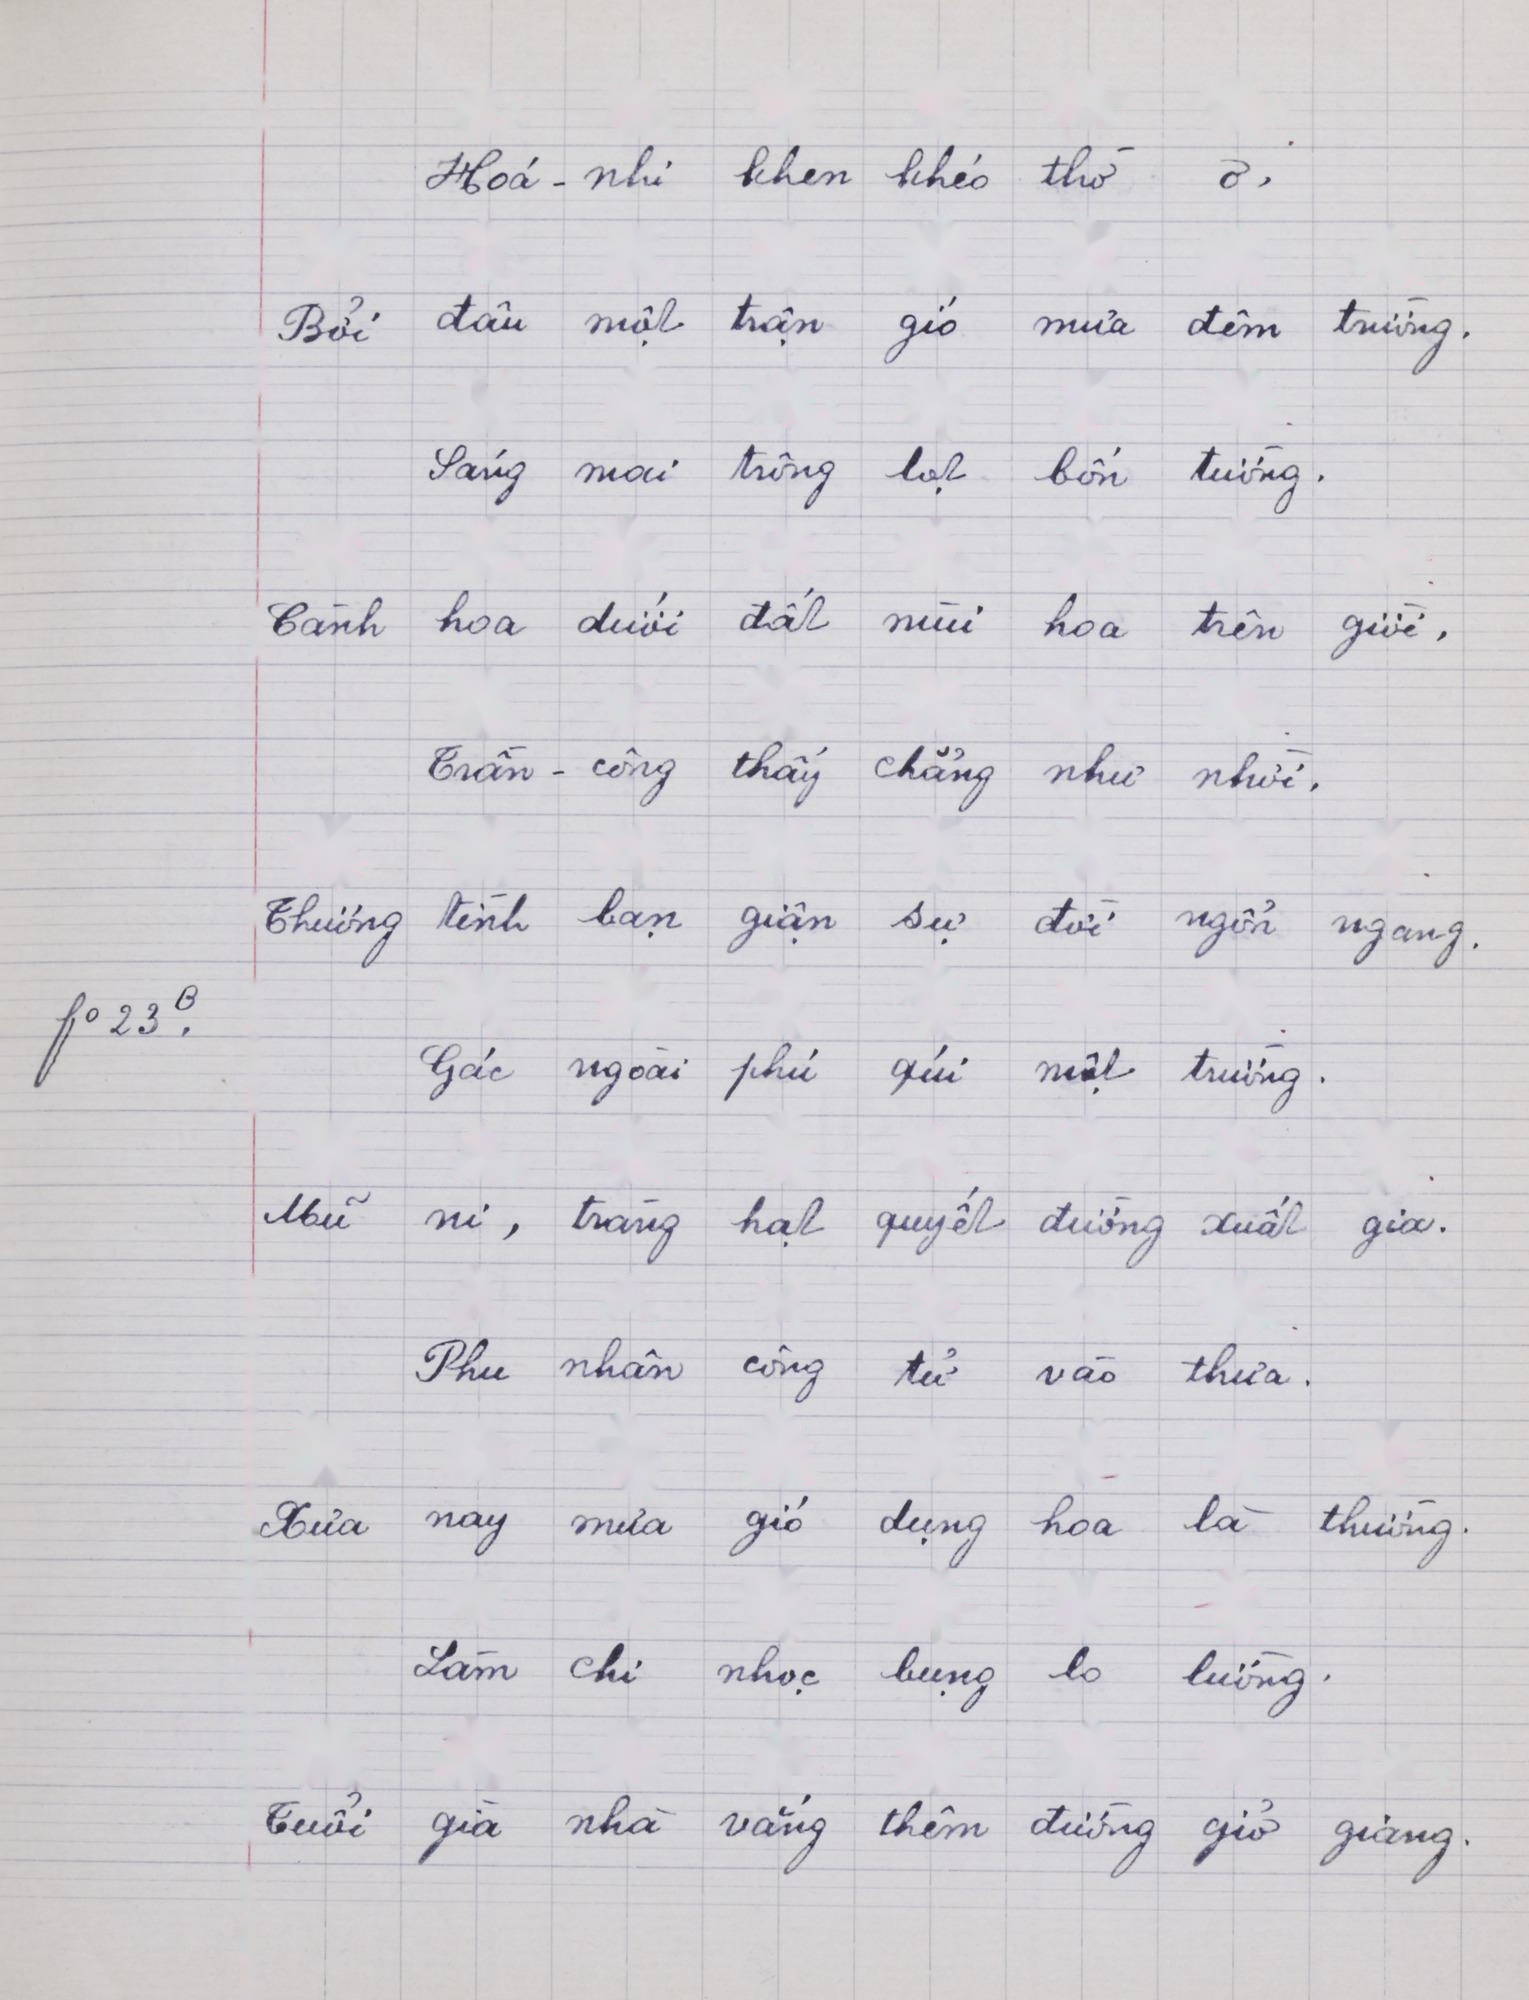 Hoá - nhi khen khéo thờ ơ,
Bởi đâu một trận gió mưa đêm trường.
Sáng mai trông lọt bốn tường.
Cành hoa dưới đất mùi hoa trên giời,
Trần - công thấy chẳng như nhời,
Thương tình bạn giận sự đời ngổn ngang.
Gác ngoài phú quí một trường.
fº 23 B.
Mũ ni, tràng hạt quyết đường xuất gia.
Phu nhân công tử vào thưa.
Xưa nay mưa gió dụng hoa là thường.
Làm chi nhọc bụng lo lường.
Tuổi già nhà vắng thêm đường giở giang.